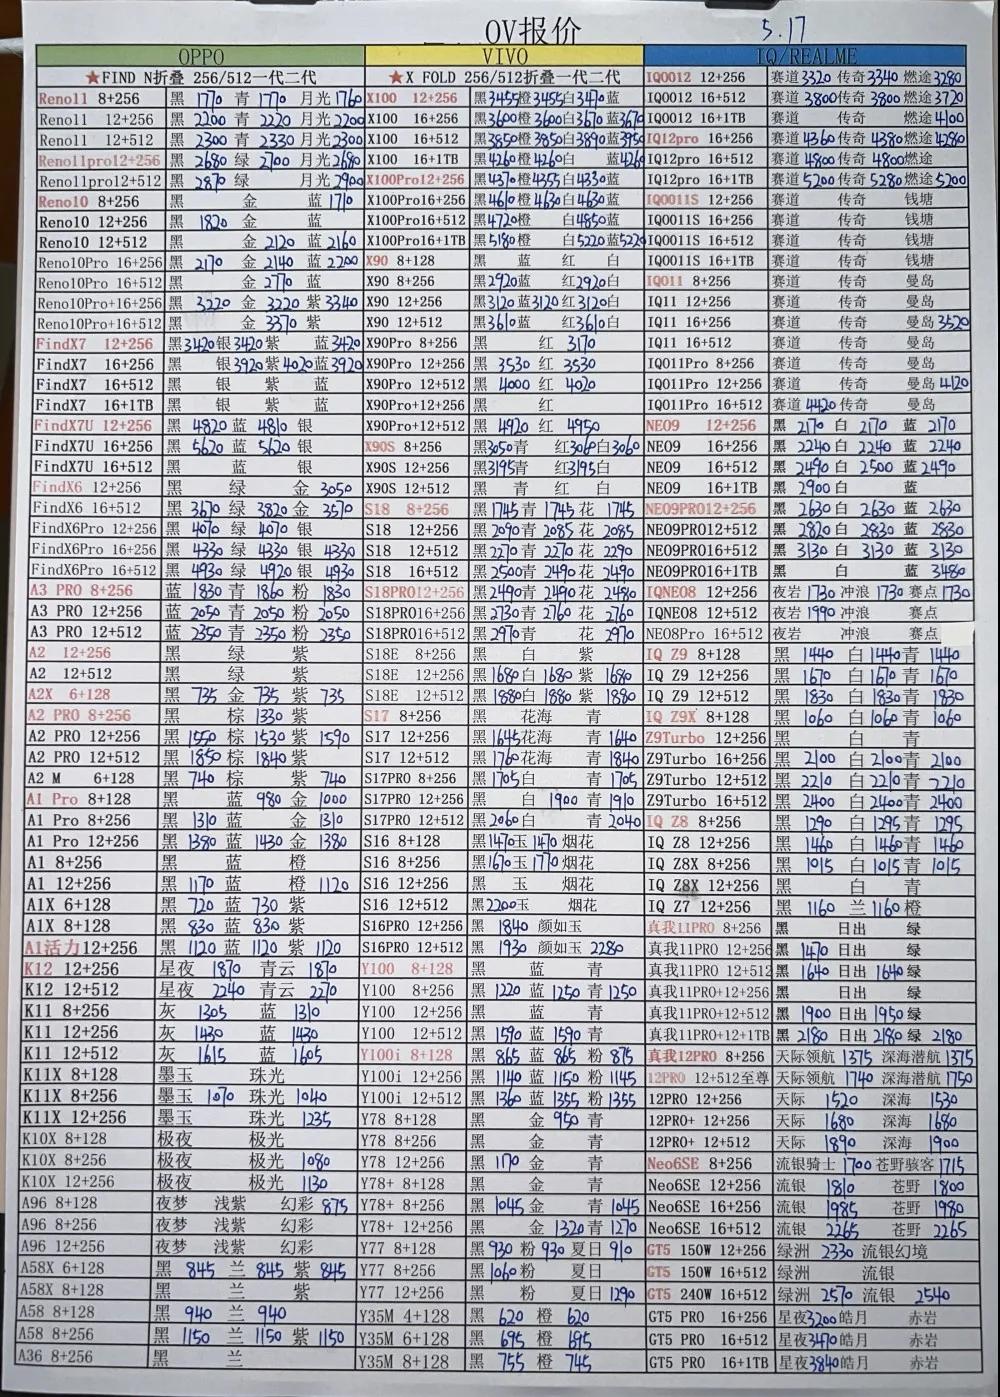 OV报价 5.17
OPPO VIVO IQ/REALME
★FIND N折叠 256/512一代二代 ★X FOLD 256/512折叠一代二代 IQOO12 12+256 赛道3320 传奇3340 燃途3280
Reno11 8+256 黑 1770 青 1770 月光1760 X100 12+256 黑3455橙3455白3470蓝 IQOO12 16+512 赛道 3800传奇 3800 燃途3720
Reno11 12+256 黑 2200 青 2220 月光2200 X100 16+256 黑3600橙3600白3670蓝3670 IQOO12 16+1TB 赛道 传奇 燃途4100
Reno11 12+512 黑 2300 青 2330 月光2300 X100 16+512 黑3850橙3850白3890蓝3950 IQ12pro 16+256 赛道4360传奇 4380燃途4280
Reno11pro12+256 黑 2680 绿 2700 月光2680 X100 16+1TB 黑4260橙4260白 蓝4260 IQ12pro 16+512 赛道 4800传奇 4800燃途
Reno11pro12+512 黑 2870 绿 月光2900 X100Pro12+256 黑4370橙4355白4330蓝 IQ12pro 16+1TB 赛道5200传奇 5280燃途5200
Reno10 8+256 黑 金 蓝1710 X100Pro16+256 黑4610橙4630白4630蓝 IQOO11S 12+256 赛道 传奇 钱塘
Reno10 12+256 黑 1820 金 蓝 X100Pro16+512 黑4720橙 白4850蓝 IQOO11S 16+256 赛道 传奇 钱塘
Reno10 12+512 黑 金 2120 蓝 2160 X100Pro16+1TB 黑5180橙 白5220蓝5220 IQOO11S 16+512 赛道 传奇 钱塘
Reno10Pro 16+256 黑 2170 金 2140 蓝 2200 X90 8+128 黑 蓝 红 白 IQOO11S 16+1TB 赛道 传奇 钱塘
Reno10Pro 16+512 黑 金 2770 蓝 X90 8+256 黑2920蓝 红2920白 IQO11 8+256 赛道 传奇 曼岛
Reno10Pro+16+256 黑 3220 金 3220 紫 3340 X90 12+256 黑3120蓝3120红3120白 IQ11 12+256 赛道 传奇 曼岛
Reno10Pro+16+512 黑 金 3370 紫 X90 12+512 黑3610蓝 红3610白 IQ11 16+256 赛道 传奇 曼岛3520
FindX7 12+256 黑3420银3420紫 蓝3420 X90Pro 8+256 黑 红 3170 IQ11 16+512 赛道 传奇 曼岛
FindX7 16+256 黑 银3920紫4020蓝3920 X90Pro 12+256 黑 3530 红 3530 IQO11Pro 8+256 赛道 传奇 曼岛
FindX7 16+512 黑 银 紫 蓝 X90Pro 12+512 黑 4000 红 4020 IQO11Pro 12+256 赛道 传奇 曼岛4120
FindX7 16+1TB 黑 银 紫 蓝 X90Pro+12+256 黑 红 IQO11Pro 16+512 赛道 4420传奇 曼岛
FindX7U 12+256 黑 4820 蓝 4810 银 X90Pro+12+512 黑 4920 红 4950 NEO9 12+256 黑 2170 白 2170 蓝 2170
FindX7U 16+256 黑 5620 蓝 5620 银 X90S 8+256 黑3050青 红3060白3060 NEO9 16+256 黑 2240白 2240 蓝 2240
FindX7U 16+512 黑 蓝 银 X90S 12+256 黑3195青 红3195白 NEO9 16+512 黑 2490白 2500 蓝2490
FindX6 12+256 黑 绿 金 3050 X90S 12+512 黑 青 红 白 NEO9 16+1TB 黑 2900白 蓝
FindX6 16+512 黑 3670 绿 3820 金 3570 S18 8+256 黑1745青 1745 花 1745 NEO9PRO12+256 黑 2630白 2630 蓝 2630
FindX6Pro 12+256 黑 4070 绿 4070 银 S18 12+256 黑2090青 2085 花 2085 NEO9PRO12+512 黑 2820白 2830 蓝 2830
FindX6Pro 16+256 黑 4330 绿 4330 银 4330 S18 12+512 黑2270青 2270 花 2290 NEO9PRO16+512 黑 3130白 3130 蓝 3130
FindX6Pro 16+512 黑 4930 绿 4920 银 4930 S18 16+512 黑2500青 2490 花 2490 NEO9PRO16+1TB 黑 白 蓝 3480
A3 PRO 8+256 蓝 1830 青 1860 粉 1830 S18PRO12+256 黑2490青 2490 花 2480 IQNEO8 12+256 夜岩 1730 冲浪 1730 赛点1730
A3 PRO 12+256 蓝 2050 青 2050 粉 2050 S18PRO16+256 黑2730青 2760 花 2760 IQNEO8 12+512 夜岩 1990 冲浪 赛点
A3 PRO 12+512 蓝 2350 青 2350 粉 2350 S18PRO16+512 黑2970青 花 2970 NEO8Pro 16+512 夜岩 冲浪 赛点
A2 12+256 黑 绿 紫 S18E 8+256 黑 白 紫 IQ Z9 8+128 黑 1440 白1440青 1440
A2 12+512 黑 绿 紫 S18E 12+256 黑1680白 1680 紫 1680 IQ Z9 12+256 黑 1670 白1670青 1670
A2X 6+128 黑 735 金 735 紫 735 S18E 12+512 黑1880白 1880 紫 1880 IQ Z9 12+512 黑 1830 白1830青 1830
A2 PRO 8+256 黑 棕 1330 紫 S17 8+256 黑 花海 青 IQ Z9X 8+128 黑 1060 白1060青 1060
A2 PRO 12+256 黑 1550 棕 1530 紫 1590 S17 12+256 黑1645花海 青 1640 Z9Turbo 12+256 黑 白 青
A2 PRO 12+512 黑 1850 棕 1840紫 S17 12+512 黑1760花海 青 1840 Z9Turbo 16+256 黑 2100 白2100青 2100
A2 M 6+128 黑 740 棕 紫 740 S17PRO 8+256 黑1705白 青 1705 Z9Turbo 12+512 黑 2210 白2210青 2210
A1 Pro 8+128 黑 蓝 980 金 1000 S17PRO 12+256 黑 白 1900 青 1910 Z9Turbo 16+512 黑 2400 白2400青 2400
A1 Pro 8+256 黑 1310 蓝 金 1310 S17PRO 12+512 黑2060白 青 2040 IQ Z8 8+256 黑 1290 白1295青 1295
A1 Pro 12+256 黑 1380 蓝 1430 金 1380 S16 8+128 黑1470玉 1470 烟花 IQ Z8 12+256 黑 1460 白1460青 1460
A1 8+256 黑 蓝 橙 S16 8+256 黑1670玉 1770 烟花 IQ Z8X 8+256 黑 1015 白1015青 1015
A1 12+256 黑 1170 蓝 橙 1120 S16 12+256 黑 玉 烟花 IQ Z8X 12+256 黑 白 青
A1X 6+128 黑 720 蓝 730 紫 S16 12+512 黑2200玉 烟花 IQ Z7 12+256 黑 1160 兰1160橙
A1X 8+128 黑 830 蓝 830 紫 S16PRO 12+256 黑 1840 颜如玉 真我11PRO 8+256 黑 日出 绿
A1活力12+256 黑 1120 蓝 1120 紫 1120 S16PRO 12+512 黑 1930 颜如玉 2280 真我11PRO 12+256 黑 1470 日出 绿
K12 12+256 星夜 1870 青云 1870 Y100 8+128 黑 蓝 青 真我11PRO 12+512 黑 1640 日出 1640绿
K12 12+512 星夜 2240 青云 2270 Y100 8+256 黑 1220 蓝 1250 青 1250 真我11PRO+12+256 黑 日出 绿
K11 8+256 灰 1305 蓝 1310 Y100 12+256 黑 蓝 青 真我11PRO+12+512 黑 1900 日出 1950绿
K11 12+256 灰 1430 蓝 1430 Y100 12+512 黑 1590 蓝 1590 青 真我11PRO+12+1TB 黑 2180 日出 2180 绿 2180
K11 12+512 灰 1615 蓝 1605 Y100i 8+128 黑 865 蓝 865 粉 875 真我12PRO 8+256 天际领航 1375 深海潜航 1375
K11X 8+128 墨玉 珠光 Y100i 12+256 黑 1140 蓝 1150 粉 1145 12PRO 12+512至尊 天际领航 1740 深海潜航 1750
K11X 8+256 墨玉 1070 珠光 1040 Y100i 12+512 黑 1360 蓝 1355 粉 1355 12PRO 12+256 天际 1520 深海 1530
K11X 12+256 墨玉 珠光 1235 Y78 8+128 黑 金 950 青 12PRO+ 12+256 天际 1680 深海 1680
K10X 8+128 极夜 极光 Y78 8+256 黑 金 青 12PRO+ 12+512 天际 1890 深海 1900
K10X 8+256 极夜 极光 1080 Y78 12+256 黑 1170 金 青 Neo6SE 8+256 流银骑士 1700 苍野骇客 1715
K10X 12+256 极夜 极光 1130 Y78+ 8+128 黑 金 青 Neo6SE 12+256 流银 1810 苍野 1800
A96 8+128 夜梦 浅紫 幻彩 875 Y78+ 8+256 黑1045金 青 1045 Neo6SE 16+256 流银 1985 苍野 1980
A96 8+256 夜梦 浅紫 幻彩 Y78+ 12+256 黑 金 1320青 1270 Neo6SE 16+512 流银 2265 苍野 2265
A96 12+256 夜梦 浅紫 幻彩 Y77 8+128 黑930 粉 930 夏日 910 GT5 150W 12+256 绿洲 2330 流银幻境
A58X 6+128 黑 845 兰 845 紫 845 Y77 8+256 黑1060粉 夏日 GT5 150W 16+512 绿洲 流银
A58X 8+128 黑 兰 紫 Y77 12+256 黑 粉 夏日 1290 GT5 240W 16+512 绿洲 2570 流银 2540
A58 8+128 黑 940 兰 940 Y35M 4+128 黑 620 橙 620 GT5 PRO 16+256 星夜3200皓月 赤岩
A58 8+256 黑 1150 兰 1150 紫 1150 Y35M 6+128 黑 695 橙 695 GT5 PRO 16+512 星夜3470皓月 赤岩
A36 8+256 黑 兰 Y35M 8+128 黑 755 橙 745 GT5 PRO 16+1TB 星夜3840皓月 赤岩